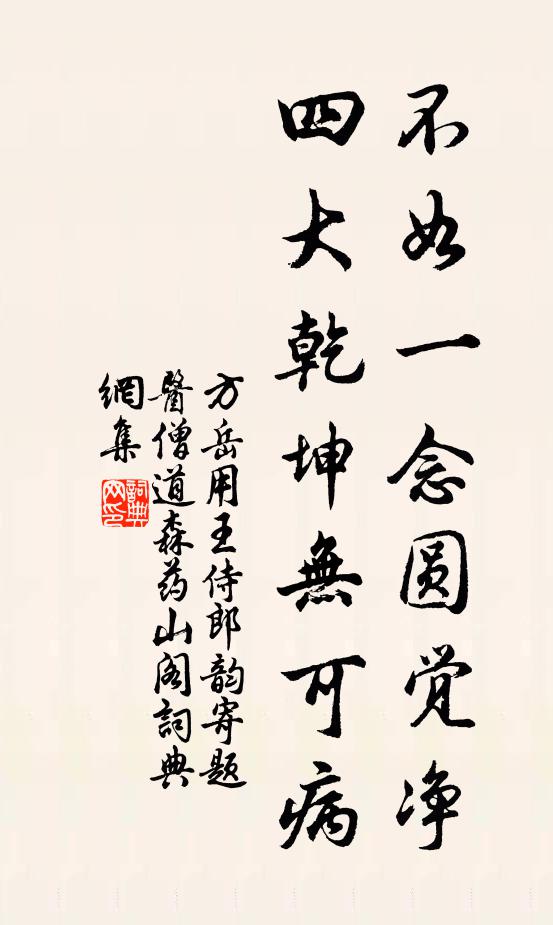 不如一念圆觉净
四大乾坤無可病
方岳用王侍郎韵寄题
醫僧道森药山阁詞典
網集
詞典
网印